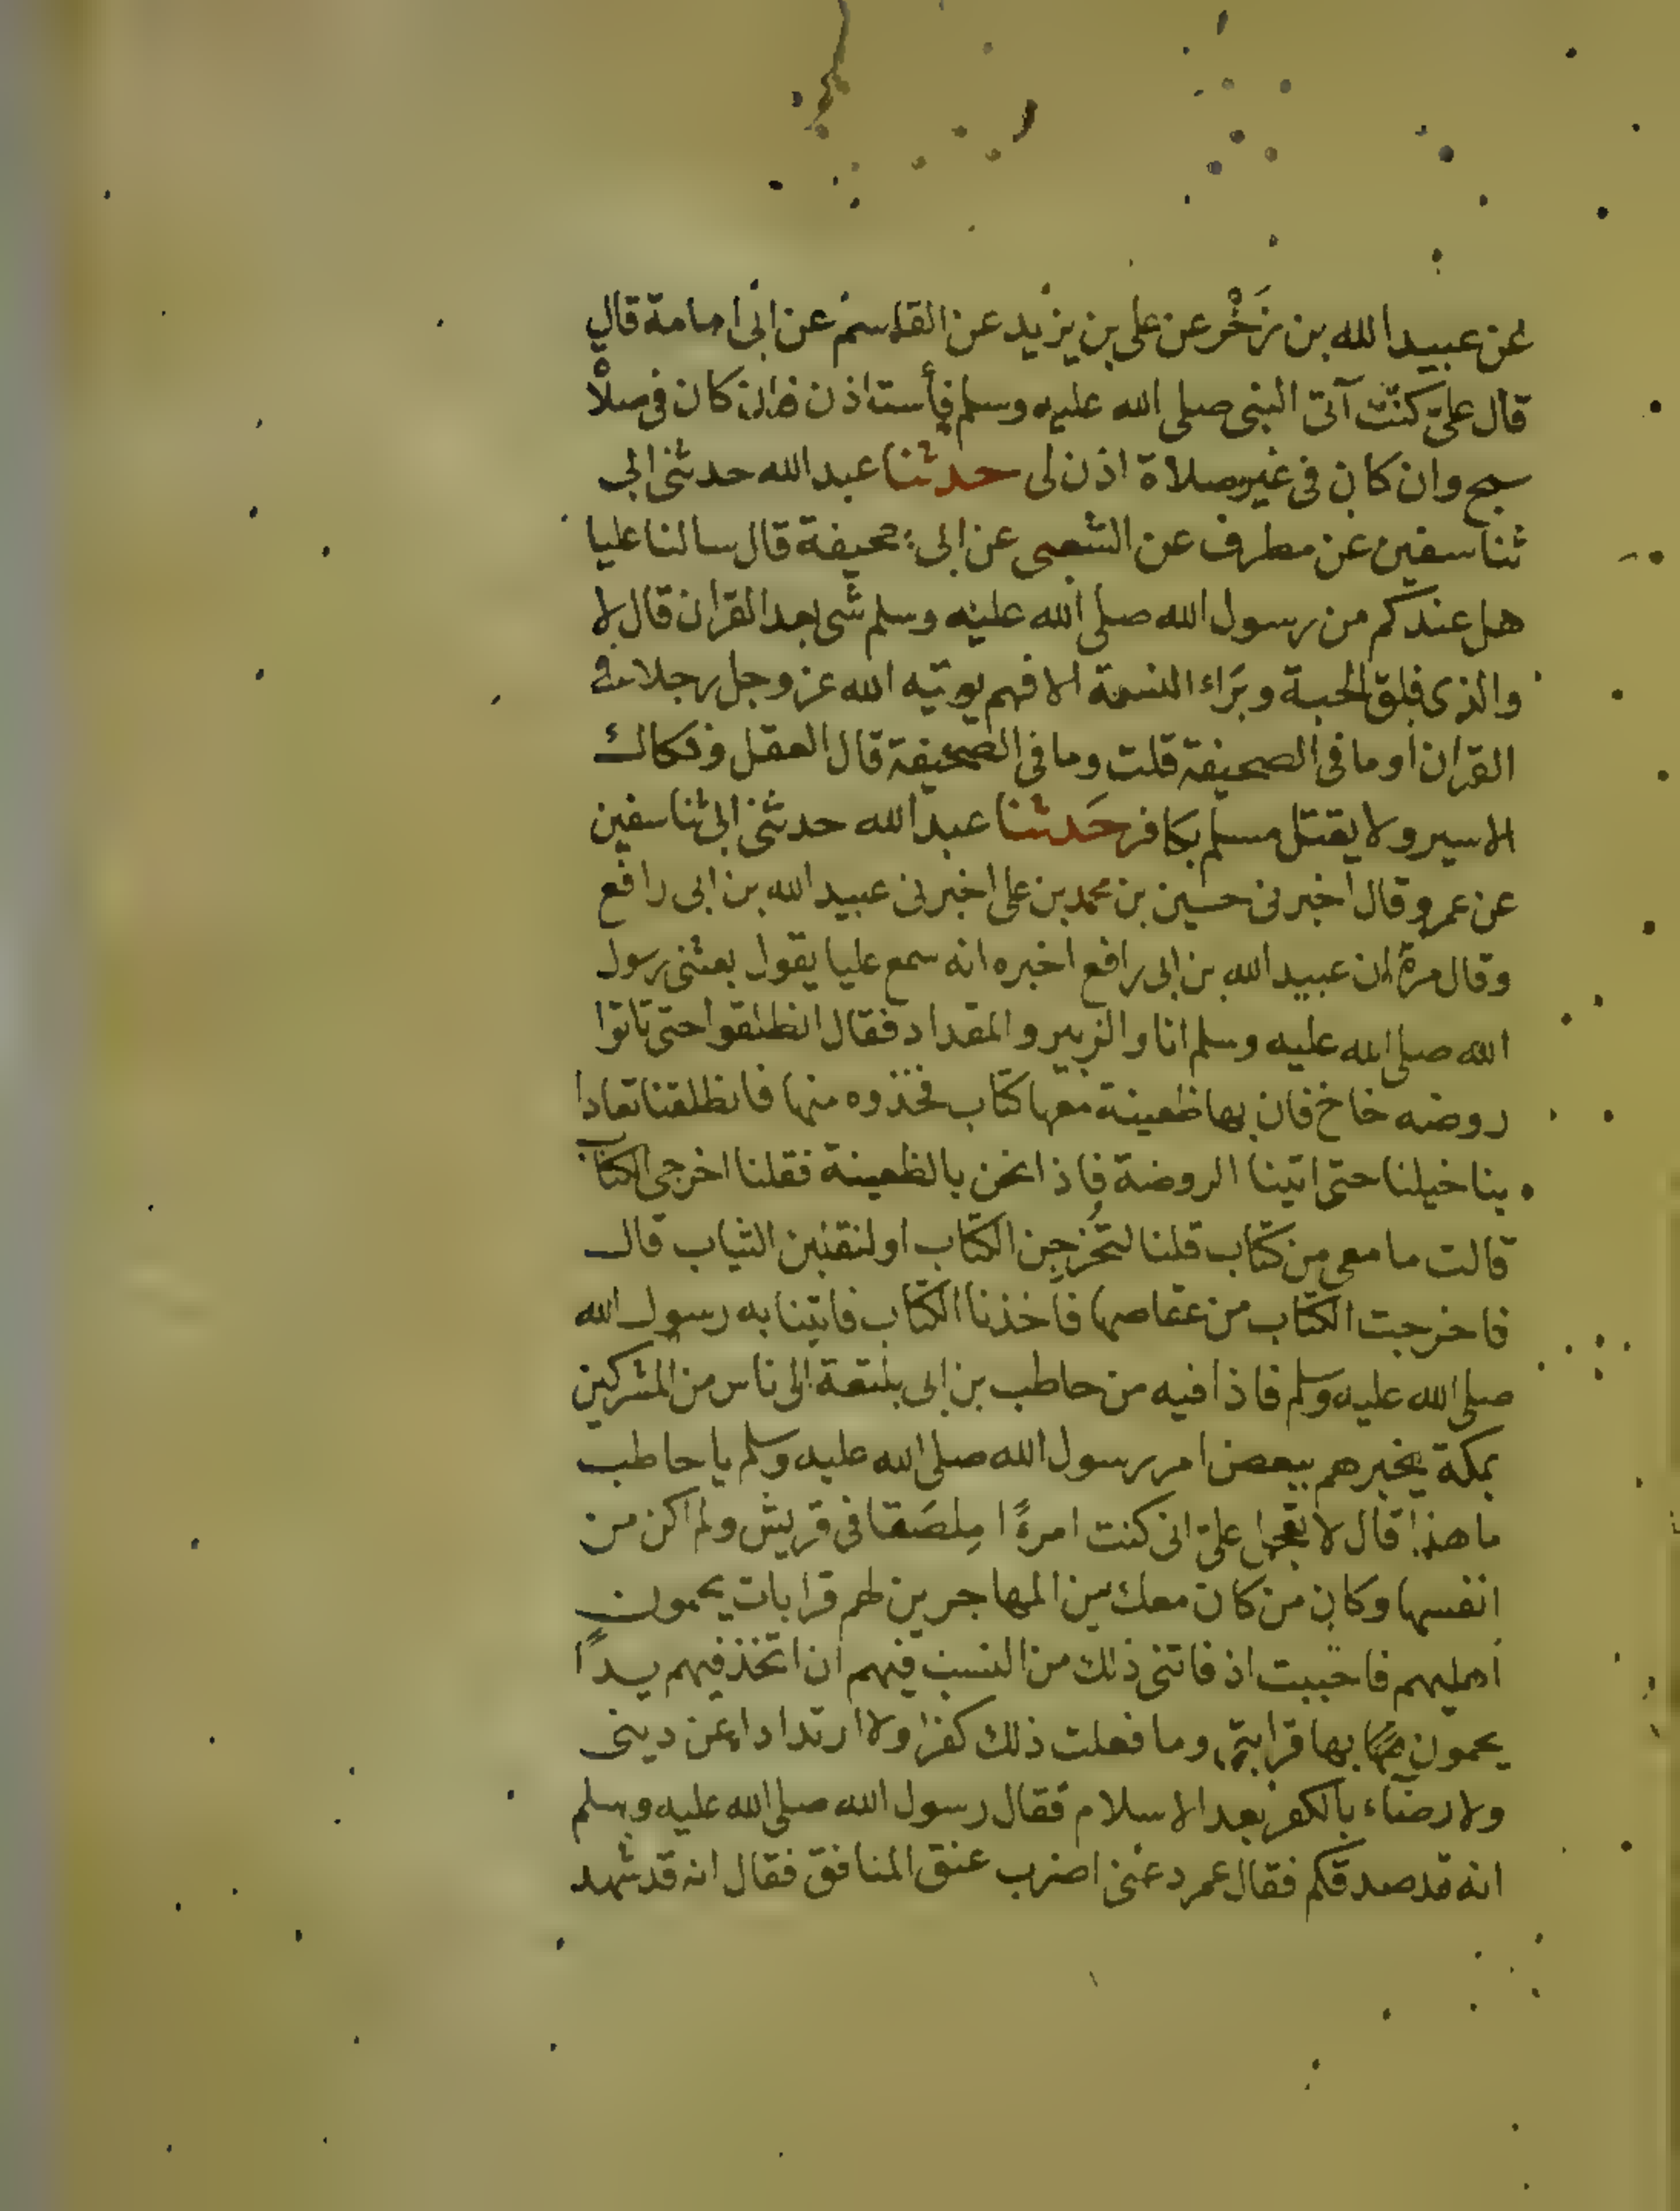 عن عبيد الله بن زَخْر عن على بن يزيد عن القاسم عن ابى امامة قال
قال علىّ كنت آتى النبى صلى الله عليه وسلم فأستاذن فان كان فى صلاة
سبح وان كان فى غير صلاة اذن لى حدثنا عبد الله حدثنى ابى
ثنا سفين عن مطرف عن الشعبى عن ابى جحيفة قال سالنا عليا
هل عندكم من رسول الله صلى الله عليه وسلم شى بعد القران قال لا
والذى فلق الحبة وبَراء النسمة الا فهم يوتيه الله عز وجل رجلا فى
القران او ما فى الصحيفة قلت وما فى الصحيفة قال العقل وفكاك
الاسير ولا يقتل مسلم بكافر حَدثنا عبد الله حدثنى ابى ثنا سفين
عن عمرو قال اخبرنى حسين بن محمد بن على اخبرنى عبيد الله بن ابى رافع
وقال مرة ان عبيد الله بن ابى رافع اخبره انه سمع عليا يقول بعثنى رسول
الله صلى الله عليه وسلم انا والزبير والمقداد فقال انطلقوا حتى تاتوا
روضه خاخ فان بها ظعينة معها كتاب فخذوه منها فانطلقنا تعادا
بنا خيلنا حتى اتينا الروضة فاذا نحن بالظعينة فقلنا اخرجى الكتاب
قالت ما معى من كتاب قلنا لتُخرجِن الكتاب او لنقلبن الثياب قال
فاخرجت الكتاب من عقاصها فاخذنا الكتاب فاتينا به رسول الله
صلى الله عليه وسلم فاذا فيه من حاطب بن ابى بلتعة الى ناس من المشركين
بمكة يخبرهم ببعض امر رسول الله صلى الله عليه وسلم يا حاطب
ما هذا قال لا تعجل علىّ انى كنت امرءًا مِلصَقا فى قريش ولم اكن من
انفسها وكان من كان معك من المهاجرين لهم قرابات يحمون
اهليهم فاحببت اذ فاتنى ذلك من النسب فيهم ان اتخذ فيهم يدًا
يحمون بها قرابتى وما فعلت ذلك كفرا ولا ارتدادا عن دينى
ولا رضاء بالكفر بعد الاسلام فقال رسول الله صلى الله عليه وسلم
انه قد صدقكم فقال عمر دعنى اضرب عنق المنافق فقال انه قد شهد